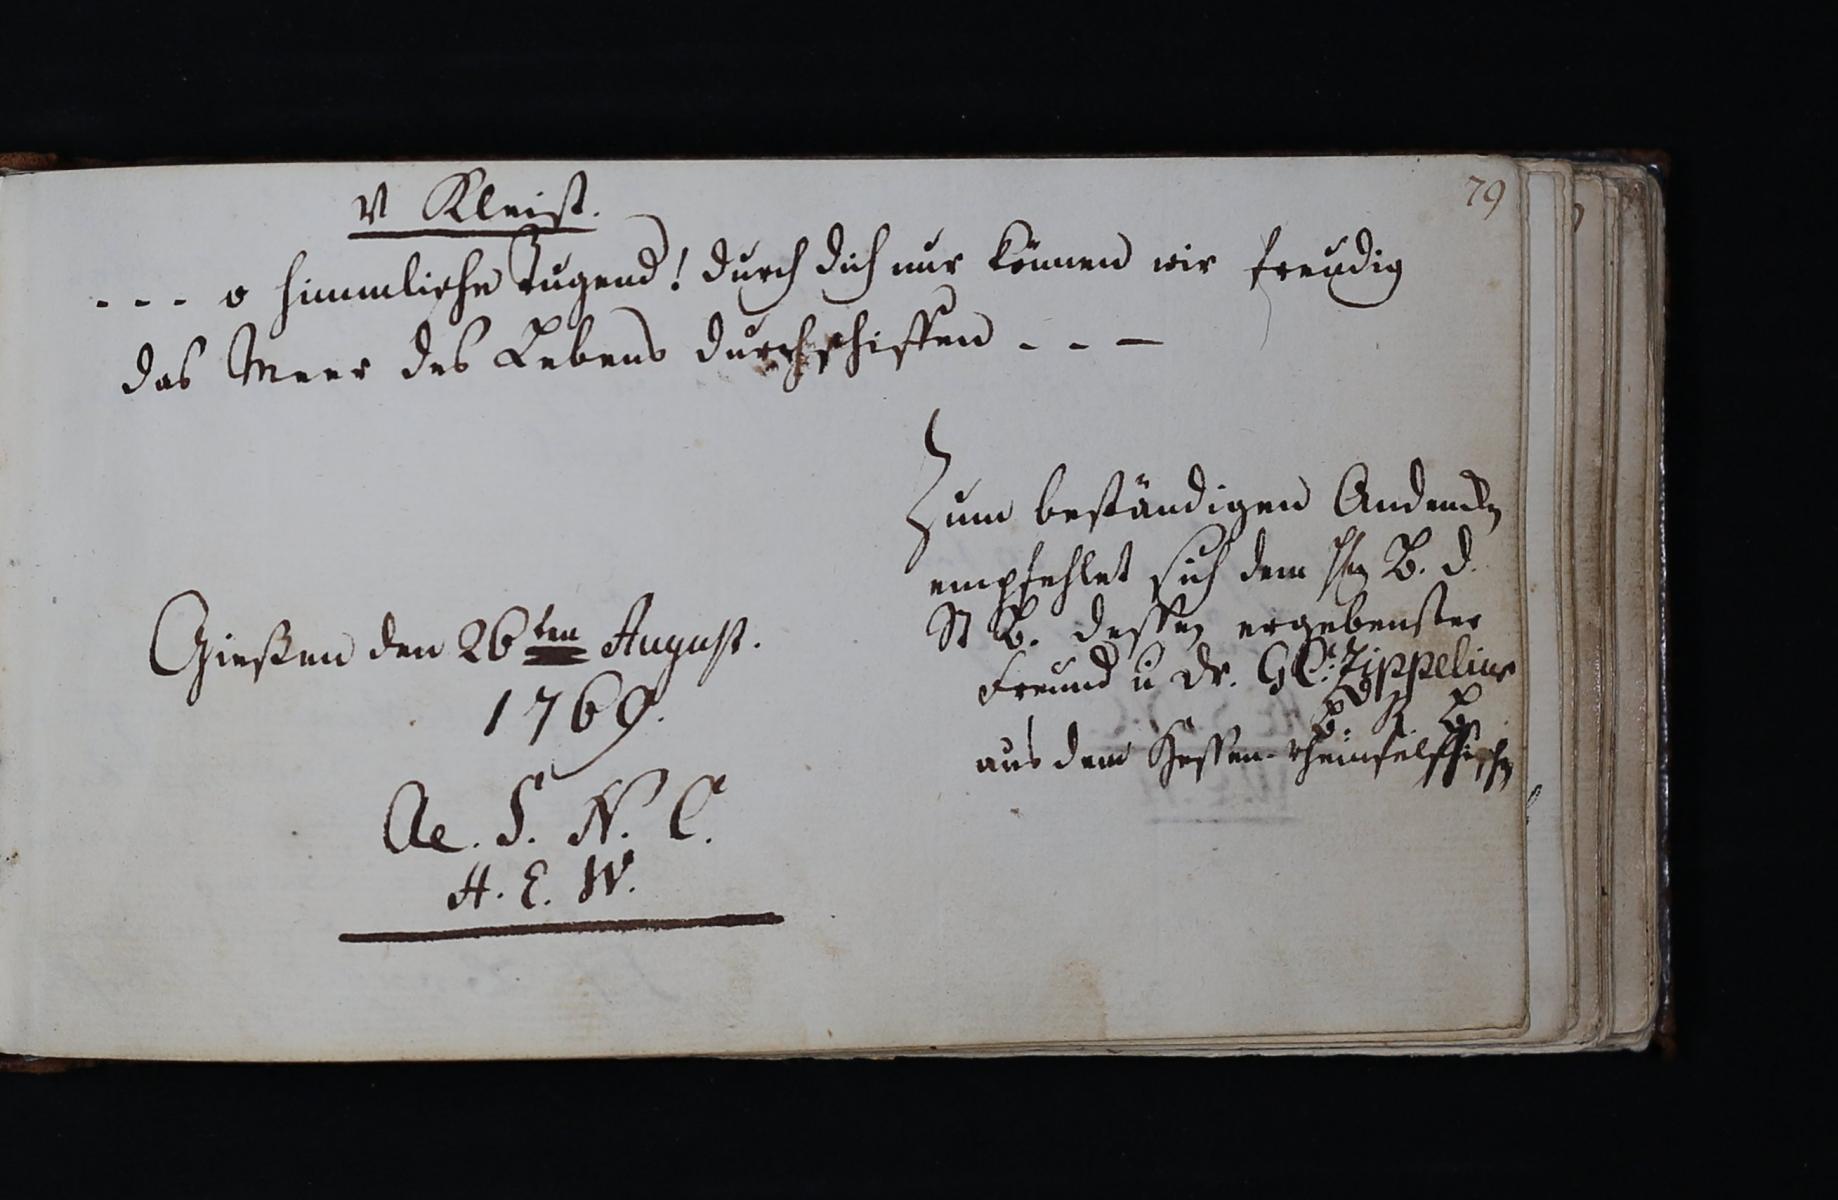 79
v Kleist.
--- o himmlische Tugend! durch dich nur können wir freudig
das Meer des Lebens durchschiffen ---
Zum beständigen Andencken
empfehlet sich dem Hn B. d.
St B. dessen ergebenster
Freund u Dr. G C. Zippelius
B. R. B.
aus dem Hessen-rheinfelssischen
Giesßen den 26ten August.
1769.
Ae. S. N. C.
H. E. W.